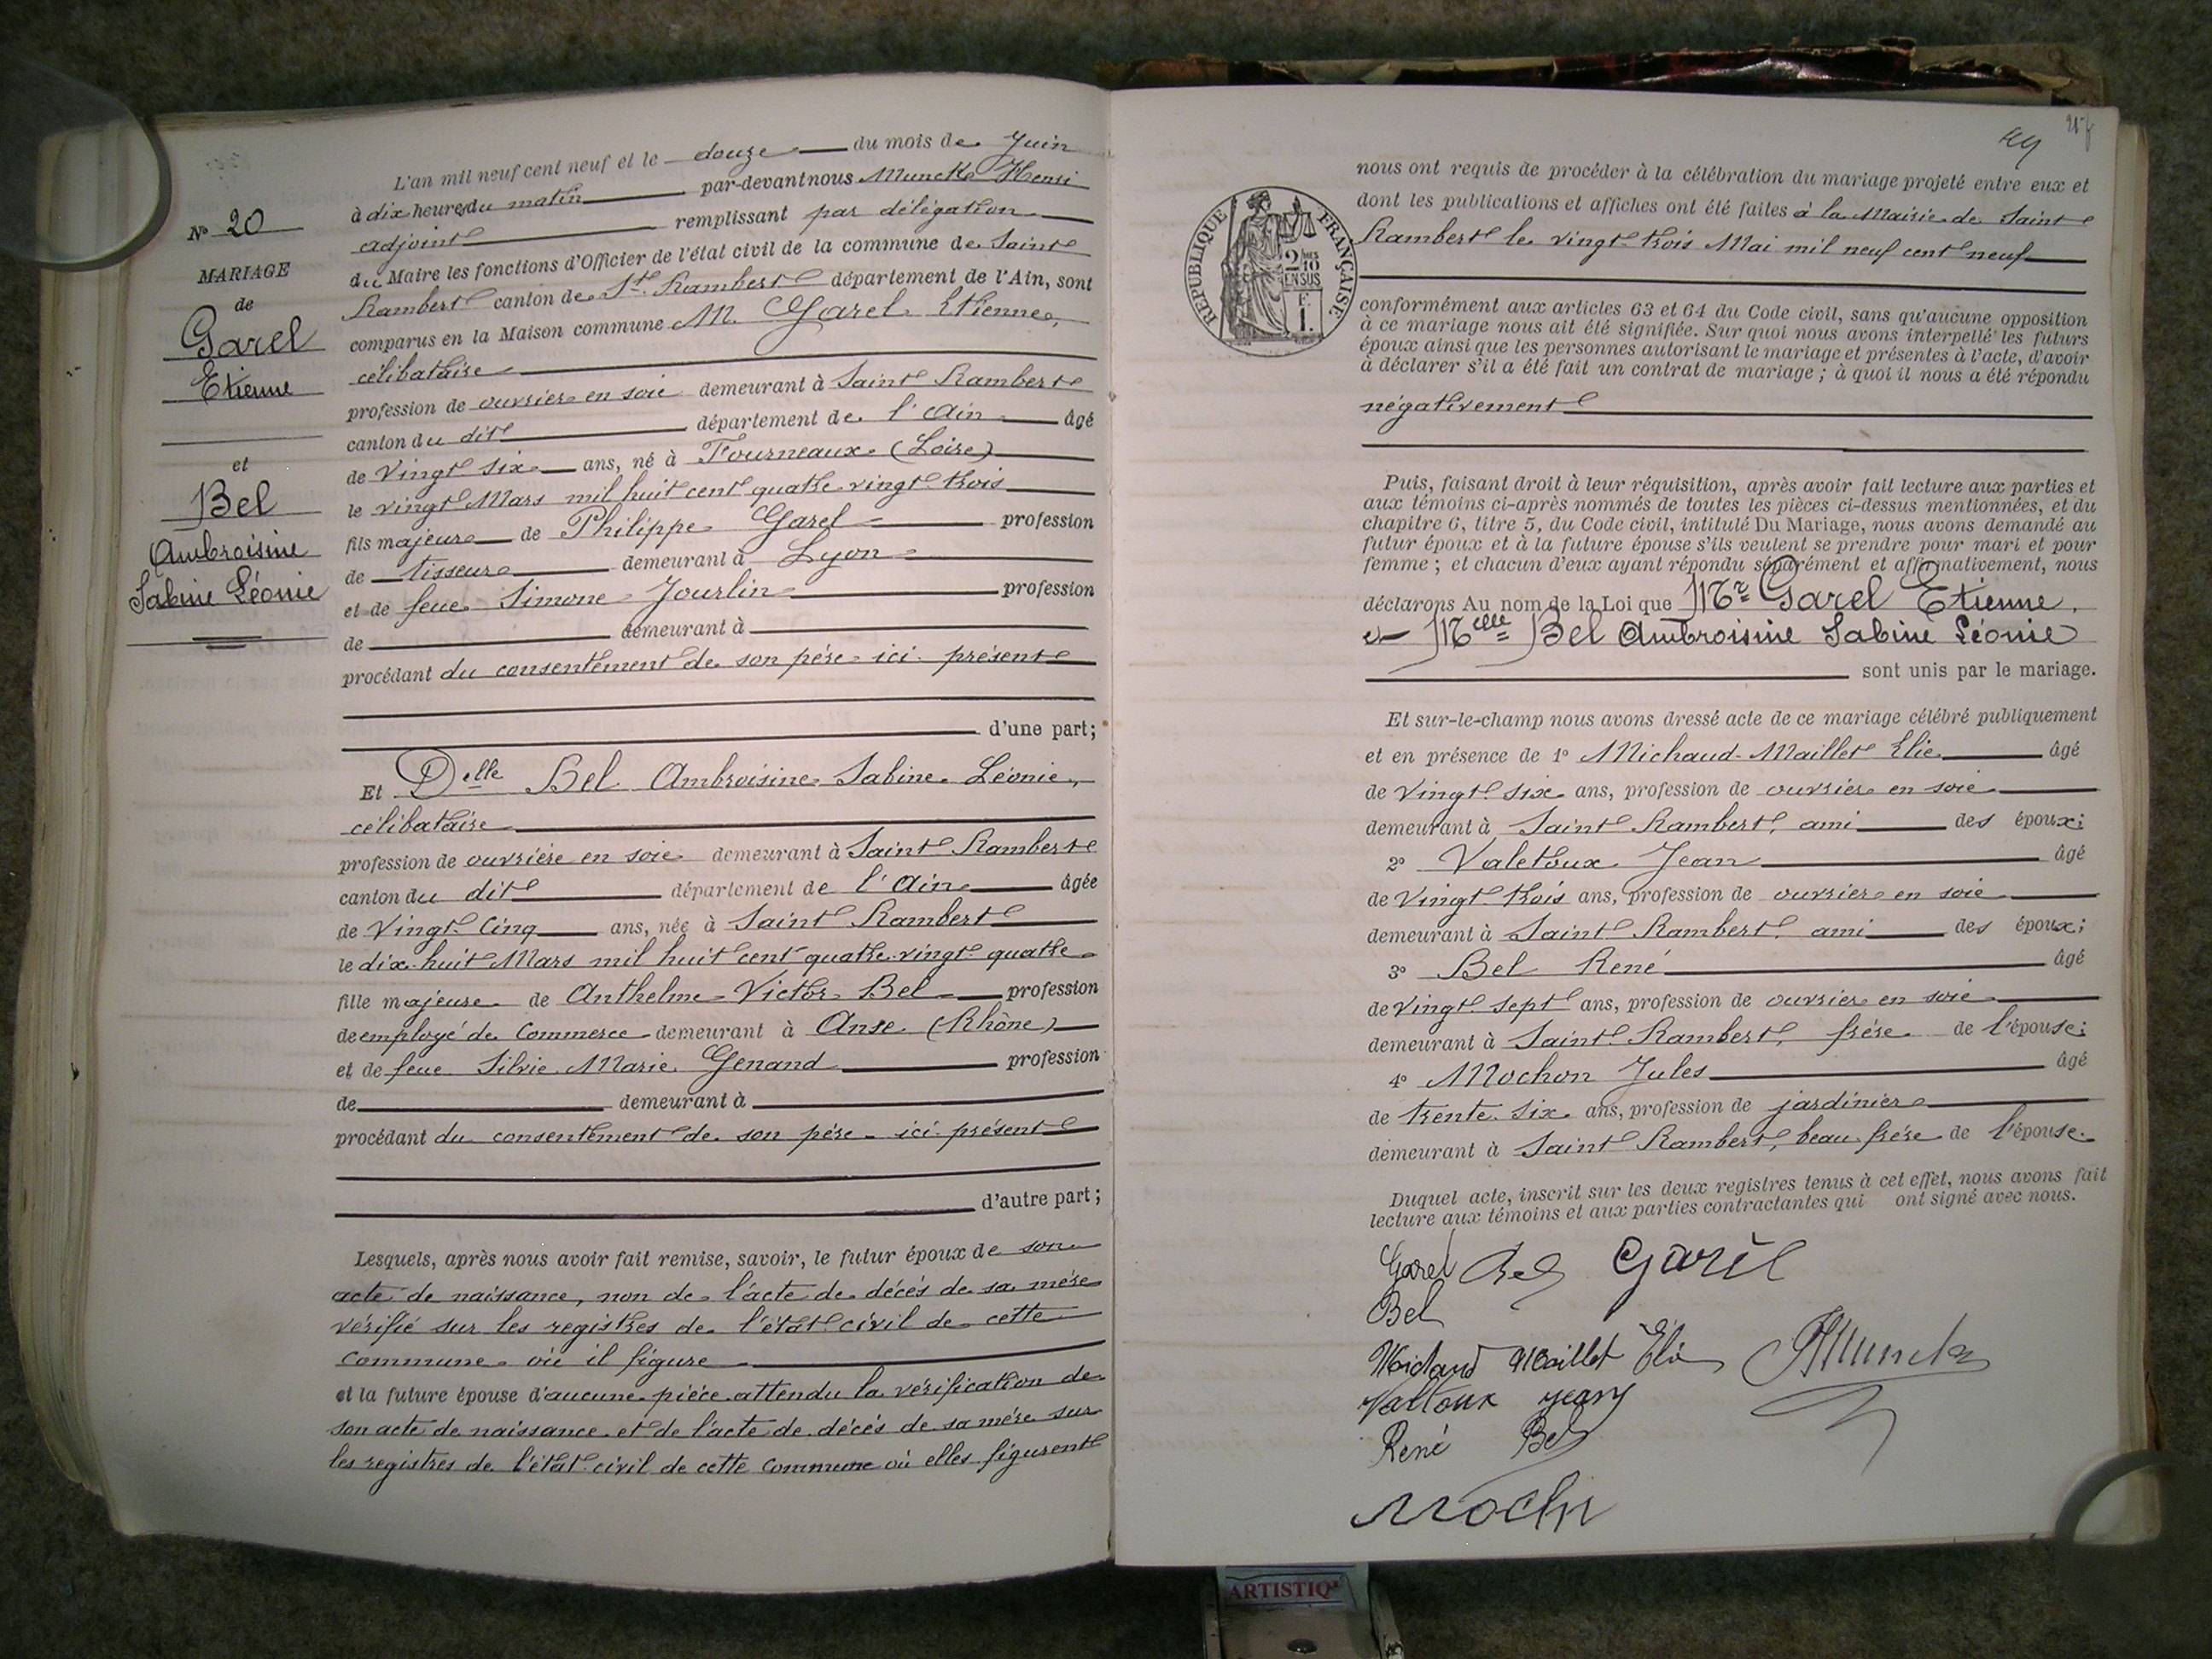 N° 20
MARIAGE
de
Garel
Etienne
et
Bel
Ambroisine
Sabine Léonie
L'an mil neuf cent neuf et le douze du mois de Juin
à dix heures du matin par-devant nous Munck Henri
adjoint remplissant par délégation
du Maire les fonctions d'Officier de l'état civil de la commune de Saint
Rambert canton de St. Rambert département de l'Ain, sont
comparus en la Maison commune M. Garel Etienne,
célibataire
profession de ouvrier en soie demeurant à Saint Rambert
canton du dit département de l'Ain âgé
de Vingt six ans, né à Fourneaux (Loire)
le vingt Mars mil huit cent quatre vingt trois
fils majeur de Philippe Garel profession
de tisseur demeurant à Lyon
et de feue Simone Jourlin profession
de demeurant à
procédant du consentement de son père ici présent
d'une part;
Et Delle Bel Ambroisine Sabine Léonie,
célibataire
profession de ouvrière en soie demeurant à Saint Rambert
canton du dit département de l'Ain âgée
de Vingt Cinq ans, née à Saint Rambert
le dix huit Mars mil huit cent quatre vingt quatre
fille majeure de Anthelme Victor Bel profession
de employé de Commerce demeurant à Anse (Rhône)
et de feue Silvie Marie Genand profession
de demeurant à
procédant du consentement de son père ici présent
d'autre part;
Lesquels, après nous avoir fait remise, savoir, le futur époux de son
acte de naissance, non de l'acte de décés de sa mère
vérifié sur les registres de l'état civil de cette
commune où il figure
et la future épouse d'aucune pièce attendu la vérification de
son acte de naissance et de l'acte de décés de sa mère sur
les registres de l'état civil de cette commune où elles figurent
RÉPUBLIQUE FRANÇAISE
2/10
EN SUS
F.
1.
nous ont requis de procéder à la célébration du mariage projeté entre eux et
dont les publications et affiches ont été faites à la Mairie de Saint
Rambert le vingt trois Mai mil neuf cent neuf
conformément aux articles 63 et 64 du Code civil, sans qu'aucune opposition
à ce mariage nous ait été signifiée. Sur quoi nous avons interpellé les futurs
époux ainsi que les personnes autorisant le mariage et présentes à l'acte, d'avoir
à déclarer s'il a été fait un contrat de mariage; à quoi il nous a été répondu
négativement
Puis, faisant droit à leur réquisition, après avoir fait lecture aux parties et
aux témoins ci-après nommés de toutes les pièces ci-dessus mentionnées, et du
chapitre 6, titre 5, du Code civil, intitulé Du Mariage, nous avons demandé au
futur époux et à la future épouse s'ils veulent se prendre pour mari et pour
femme; et chacun d'eux ayant répondu séparément et affirmativement, nous
déclarons Au nom de la Loi que Mr Garel Etienne.
et Melle Bel Ambroisine Sabine Léonie
sont unis par le mariage.
Et sur-le-champ nous avons dressé acte de ce mariage célébré publiquement
et en présence de 1° Michaud-Maillet Elie âgé
de Vingt six ans, profession de ouvrier en soie
demeurant à Saint Rambert, ami des époux;
2° Valetoux Jean âgé
de Vingt trois ans, profession de ouvrier en soie
demeurant à Saint Rambert, ami des époux;
3° Bel René âgé
de Vingt sept ans, profession de ouvrier en soie
demeurant à Saint Rambert, frère de l'épouse;
4° Mochon Jules âgé
de trente six ans, profession de jardinier
demeurant à Saint Rambert, beau frère de l'épouse.
Duquel acte, inscrit sur les deux registres tenus à cet effet, nous avons fait
lecture aux témoins et aux parties contractantes qui ont signé avec nous.
Garel Bel Garel
Bel
Michaud Maillet Elie Munck
Valtoux Jean
René Bel
ARTISTIQ